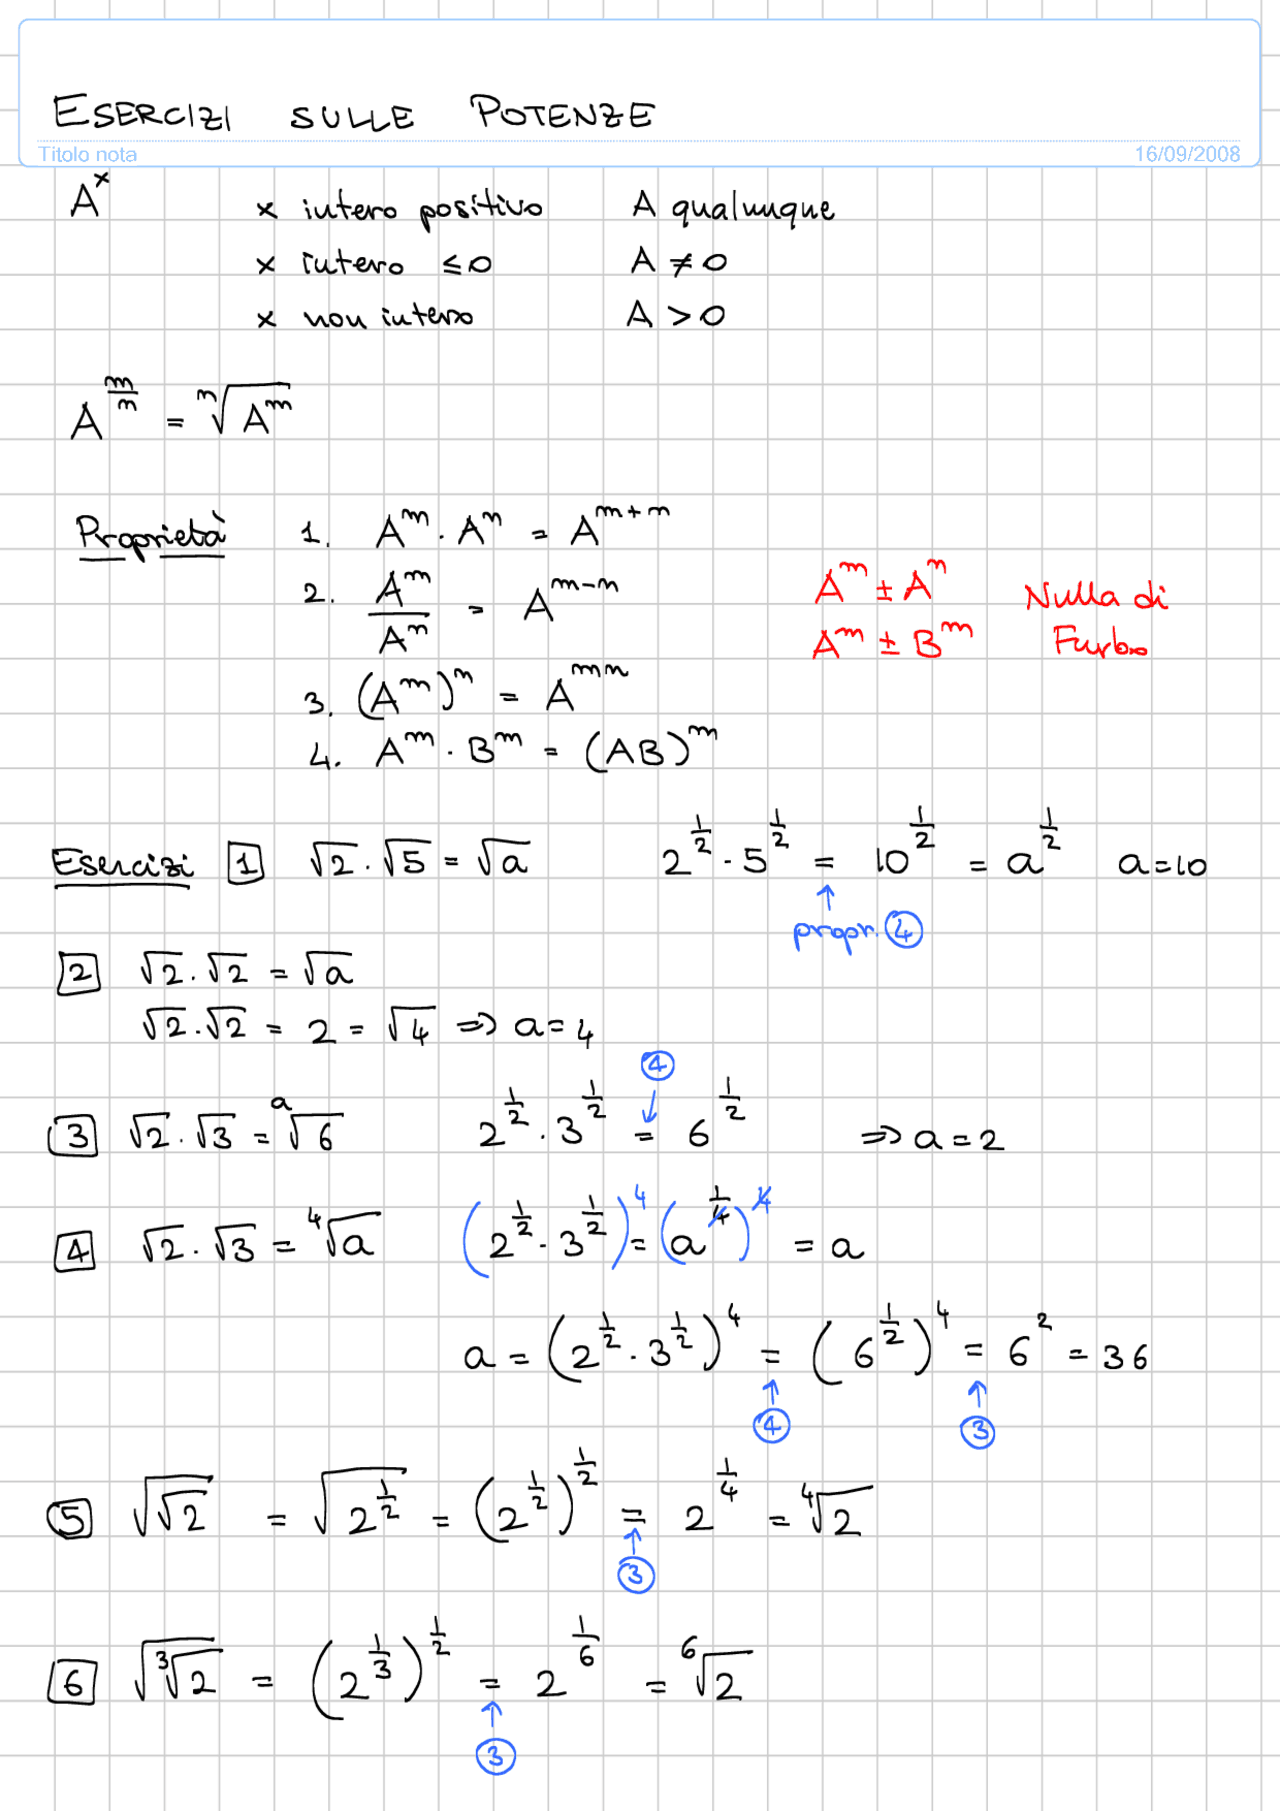 ESERCIZI SULLE POTENZE
Titolo nota 16/09/2008
A^x x intero positivo A qualunque
x intero ≤0 A ≠ 0
x non intero A > 0
A^(m/n) = ⁿ√(A^m)
Proprietà 1. A^m · A^n = A^(m+n)
2. A^m/A^n = A^(m-n) A^m ± A^n Nulla di
A^m ± B^m Furbo
3. (A^m)^n = A^(mn)
4. A^m · B^m = (AB)^m
Esercizi 1 √2 · √5 = √a 2^(1/2) · 5^(1/2) = 10^(1/2) = a^(1/2) a=10
propr. 4
2 √2 · √2 = √a
√2 · √2 = 2 = √4 ⇒ a=4
4
3 √2 · √3 = ᵃ√6 2^(1/2) · 3^(1/2) = 6^(1/2) ⇒ a=2
4 √2 · √3 = ⁴√a (2^(1/2) · 3^(1/2))^4 = (a^(1/4))^4 = a
a = (2^(1/2) · 3^(1/2))^4 = (6^(1/2))^4 = 6^2 = 36
4 3
5 √(√2) = √(2^(1/2)) = (2^(1/2))^(1/2) = 2^(1/4) = ⁴√2
3
6 √(³√2) = (2^(1/3))^(1/2) = 2^(1/6) = ⁶√2
3